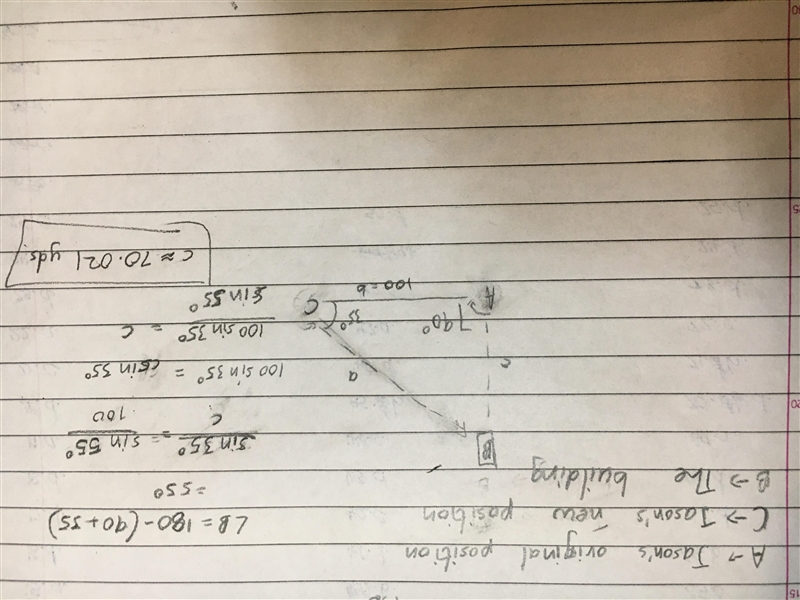 A → Jason's original position
C → Jason's new position
B → The building
B
c
a
90°
35°
A
100 = b
C
∠B = 180 - (90+35)
= 55°
sin 35° / c = sin 55° / 100
100 sin 35° = c sin 55°
100 sin 35° / sin 55° = c
c ≈ 70.021 yds.
15
20
25
30